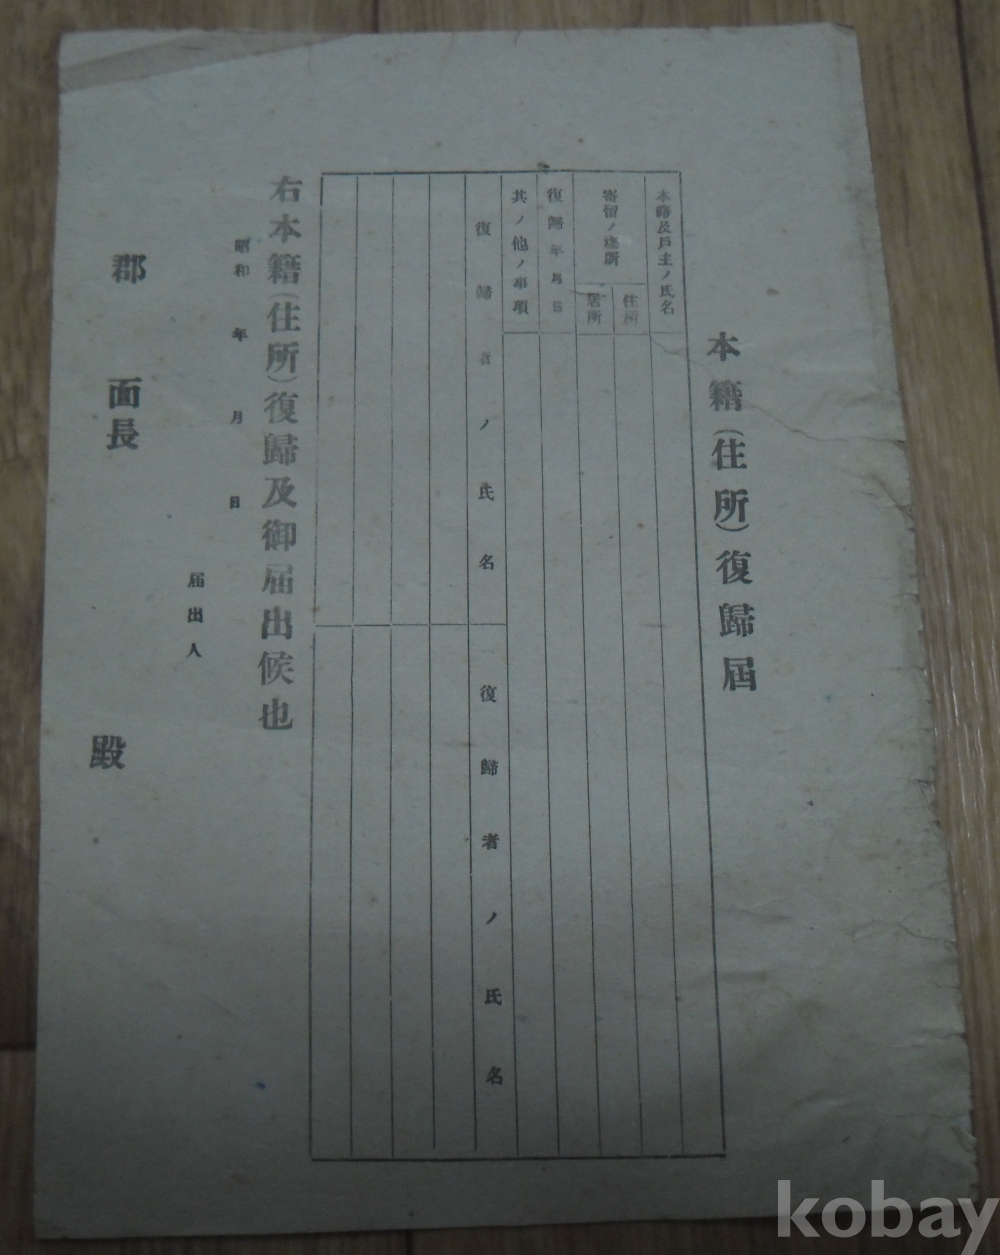 本籍（住所）復歸屆
本籍及戸主ノ氏名
寄留ノ塲所
住所
居所
復歸年月日
其ノ他ノ事項
復歸者ノ氏名
復歸者ノ氏名
右本籍（住所）復歸及御届出候也
昭和 年 月 日
届出人
郡 面長 殿
kobay